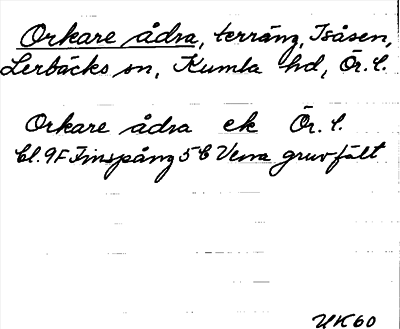 Orkare ådra, terräng, Isåsen,
Lerbäcks sn, Kumla hd, Ör. l.
Orkare ådra ek Ör. l.
Bl. 9F Finspång 5 C Vena gruvfält
UK60